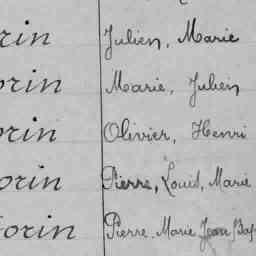 orin Julien, Marie
orin Marie, Julien
orin Olivier, Henri
orin Pierre, Louis, Marie
orin Pierre-Marie Jean Bap